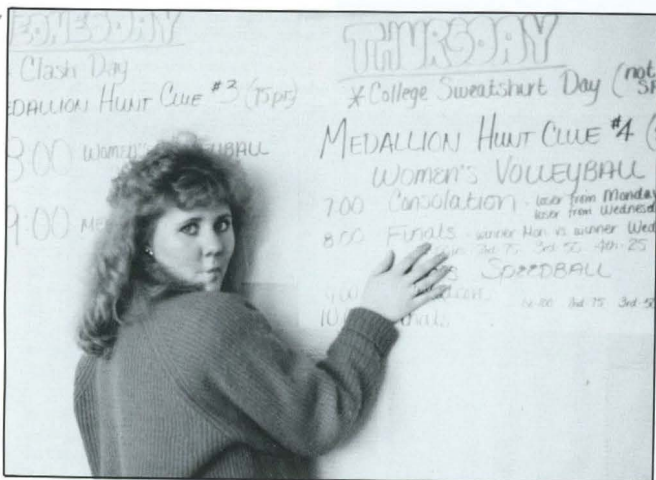 WEDNESDAY
Clash Day
MEDALLION HUNT CLUE #3 (75pt)
8:00 WOMEN'S VOLLEYBALL
9:00 ME
THURSDAY
* College Sweatshirt Day (not
MEDALLION HUNT CLUE #4 (
WOMEN'S VOLLEYBALL
7:00 Consolation - loser from Monday
loser from Wednesd
8:00 Finals - winner Mon vs winner Wed
3rd 75 3rd-50 4th-25
SPEEDBALL
3rd 75 3rd-50